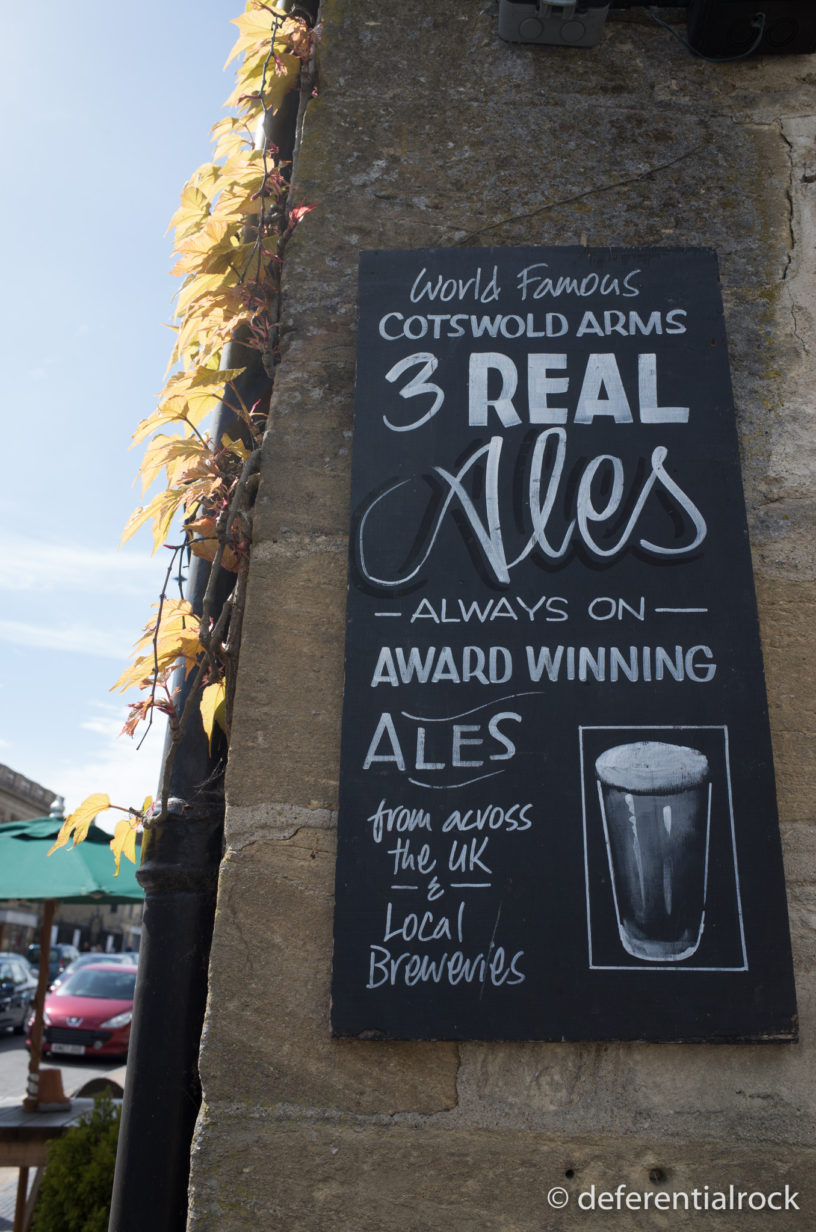 World Famous
COTSWOLD ARMS
3 REAL
Ales
— ALWAYS ON —
AWARD WINNING
ALES
from across
the UK
— & —
Local
Breweries
© deferentialrock